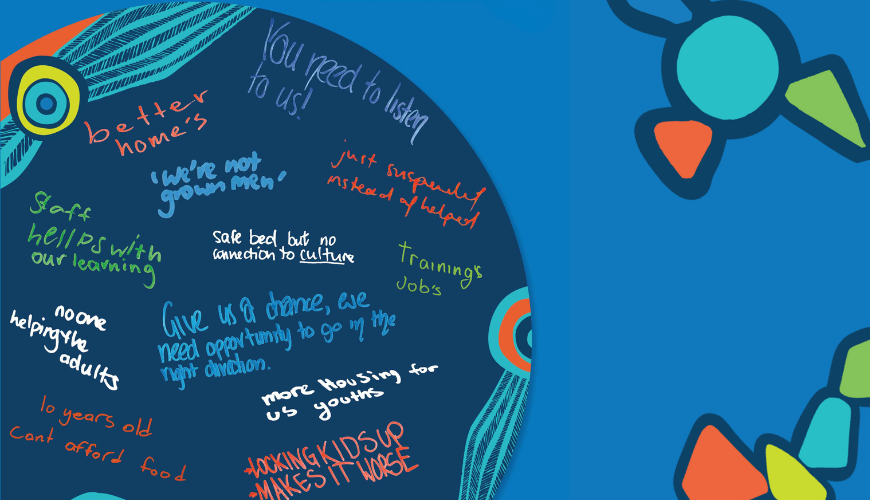 You need to listen
to us!
better
home's
'we're not
grown men'
just suspended
instead of helped
Staff
hellps with
our learning
safe bed but no
connection to culture
Training's
Job's
no one
helping the
adults
Give us a chance, we
need opportunity to go in the
right direction.
more Housing for
us youths
10 years old
Cant afford food
LOCKING KIDS UP
MAKES IT WORSE